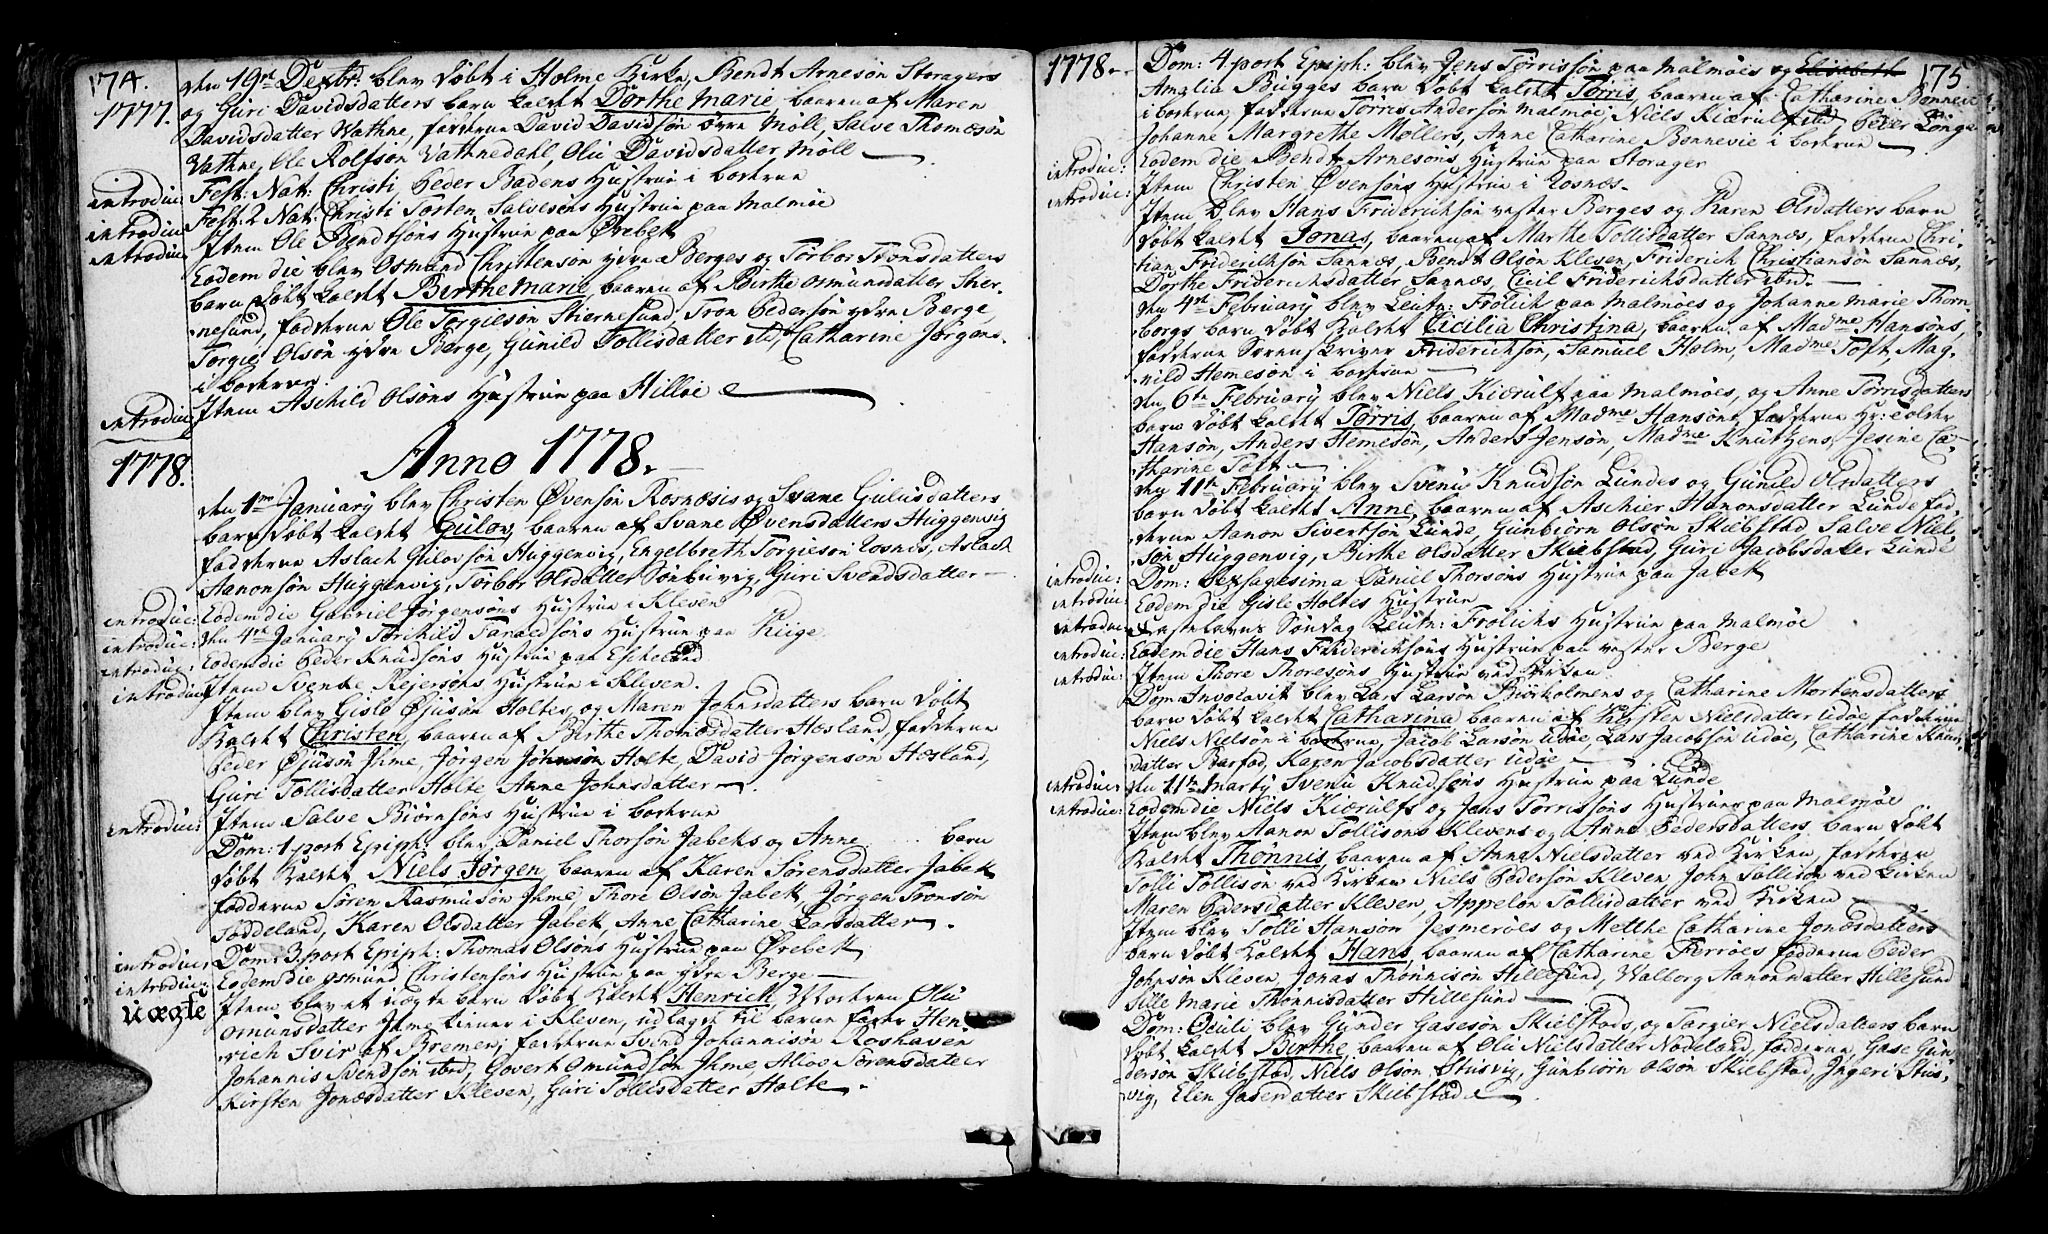 174.
1777.
den 19de Decbr: blev døbt i Holme Kirke, Bendt Arnesøn Storagers
og Guri Davidsdatters barn kaldet Dorthe Marie, baaren af Maren
Davidsdatter Vathne, fadderne David Davidsøn øvre Møll, Salve Thomesøn
Vathne, Ole Rolfsøn Vathnedahl, Olu Davidsdatter Møll
introduc: Fest: Nat: Christi, Peder Badens Hustrue i
introduc: Fest: 2 Nat: Christi Torten Salvesens Hustrue paa Malmøe
introduc: Item Ole Bendtsøns Hustrue paa Øvebek
Eodem die blev Osmund Christensøn ydre Berges og Torbor Tronsdatters
barn døbt kaldet Berthe Marie, baaren af Birthe Osmundsdatter Sher-
nesund, fadderne Ole Torgiesøn Stiernesund, Tron Pedersøn ydre Berge,
Torgie Olsøn ydre Berge, Gunild Tollisdatter ibd, Catharine Jørgens.
i
introduc: Item Aschild Olsøns Hustrue paa Hilløe
Anno 1778.
1778.
den 1me January blev Christen Øvensøn Rosnæsis og Svane Gulusdatters
barn døbt kaldet Gulov, baaren af Svane Øvensdatters Huggenvig
fadderne Aslach Gulovsøn Huggenvig, Engelbreth Torgiesøn Rosnæs, Aslach
Aanonsøn Huggenvig, Torbor Olsdatter Sønbuvig, Guri Svendsdatter
introduc: Eodem die Gabriel Jørgensøns Hustrue i Kleven
introduc: den 4de January Torchild Taraldsøns Hustrue paa Kiige
introduc: Eodem die Peder Knudsøns Hustrue paa Eskeland
introduc: Item Svenke Rejersøns Hustrue i Kleven.
Item blev Gisle Øjusøn Holtes, og Maren Johnsdatters barn døbt
kaldet Christen, baaren af Birthe Thomesdatter Hosland, fadderne
Peder Øjusøn Ihme, Jørgen Johnsøn Holte, David Jørgensøn Hosland,
Guri Tollisdatter Holte Anne Johnsdatter
introduc: Item Salve Biørnsøns Hustrue i
Dom: 1 post Epiph: blev Daniel Thorsøn Jabeks og Anne ..... barn
døbt kaldet Niels Jørgen, baaren af Karen Sørensdatter Jabek
fadderne Søren Rasmusøn Ihme, Thore Olsøn Jabek, Jørgen Tronsøn
Toddeland, Karen Olsdatter Jabek, Anne Catharine Larsdatter
introduc: Dom: 3 post Epiph: Thomas Olsøns Hustrue paa Øvebek
introduc: Eodem die Osmund Christensøns Hustrue paa ydre Berge
uægte Item blev et uægte barn døbt kaldet Henrich, Moderen Olu
Omunsdatter Ihme tiener i Kleven, udlaget til barne fader Hen-
rich Svir af Bremen; fadderne Svend Johannisøn Roshaven
Johannis Svendsøn ibd, Govert Omundsøn Ihme, Alis Sørensdatter
Kirsten Jonæsdatter Kleven, Guri Tollisdatter Holte
1778.
175
Dom: 4 post Epiph: blev Jens Tørrissøn paa Malmøes og Elisabeth
Amalia Bugges barn døbt kaldet Tørris, baaren af Catharine Bonnevie
i fadderne Tørris Andersøn Malmøe, Niels Kiærulf ibd, Peder
Johanne Margrethe Møllers, Anne Catharine Bonnevie i
introduc: Eodem die Bendt Arnesøns Hustrue paa Storager
introduc: Item Christen Øvensøns Hustrue i Rosnæs.
Item blev Hans Friderichsøn vester Berges og Karen Olsdatters barn
døbt kaldet Jonas, baaren af Marthe Tollisdatter Sannæs, fadderne Chri-
tian Friderichsøn Sannæs, Bendt Olsøn Kleven, Friderich Christiansøn Sannæs,
Dorthe Friderichsdatter Sannæs, Cicil Friderichsdatter ibd.
den 4de February blev Leutn: Frolich paa Malmøes og Johanne Marie Thorn-
borgs barn døbt kaldet Cicilia Christina, baaren af Madme Hansøns,
fadderne Sorenskriver Friderichsøn, Samuel Holm, Madme Toft, Mag-
nild Hemesøn i
den 6te February blev Niels Kiærulf paa Malmøes, og Anne Tørrisdatters
barn døbt kaldet Tørris, baaren af Madme Hansøns fadderne Hr: Tolder
Hansøn, Anders Hemesøn, Anders Jensøn, Madme Knutzens, Jesine Ca-
tharine Toft
den 11te February blev Svenu Knudsøn Lundes og Gunild Olsdatters
barn døbt kaldet Anne, baaren af Aschier Hanonsdatter Lunde fad-
derne Aanon Sivertsøn Lunde, Gunbiørn Olsøn Skiebstad Salve Niel-
søn Huggenvig, Birthe Olsdatter Skiebstad, Guri Jacobsdatter Lunde
introduc: Dom: Sexagesima Daniel Thorsøns Hustrue paa Jabek
introduc: Eodem die Gisle Holtes Hustrue
introduc: Fastelavns Søndag Leutn: Frolichs Hustrue paa Malmøe
introduc: Eodem die Hans Friderichsøns Hustrue paa vester Berge
introduc: Item Thore Thoresøns Hustrue ved Kirken
Dom: Invocavit blev Lars Larsøn Biørholmens og Catharine Mortensdatters
barn døbt kaldet Catharina baaren af Kirsten Nielsdatter Udøe, fadderne
Niels Nielsøn i Jacob Larsøn Udøe, Lars Jacobsøn Udøe, Catharine Knuds-
datter Barfod, Karen Jacobsdatter Udøe
introduc: den 11te Marty Svenu Knudsøns Hustrue paa Lunde
introduc: Eodem die Niels Kiærulfs og Jens Tørrissøns Hustruer paa Malmøe
Item blev Aanon Tollisøns Klevens og Anne Pedersdatters barn døbt
kaldet Thønnis, baaren af Anne Nielsdatter ved Kirken, fadderne
Tolli Tollisøn ved Kirken Niels Pedersøn Kleven John Tollisøn ved Kirken
Maren Pdersdatter Kleven, Appeløn Tollisdatter ved Kirken
Item blev Tolli Hansøn Jesmerøes og Metthe Catharine Jonæsdatters
barn døbt kaldet Hans, baaren af Catharine Ferrøes fadderne Peder
Johnsøn Kleven, Jonas Thønnisøn Hillesund, Walborg Aanonsdatter Hillesund
Sille Marie Thønnisdatter Hillesund
Dom: Oculi blev Gunder Gasesøn Skiebstads, og Targier Nielsdatters barn
døbt kaldet Birthe, baaren af Olu Nielsdatter Nodeland, fadderne, Gase Gun-
dersøn Skiebstad, Niels Olsøn Stusvig, Gunbiørn Olsøn Skiebstad, Ingeri Stus-
vig, Elen Gasesdatter Skiebstad